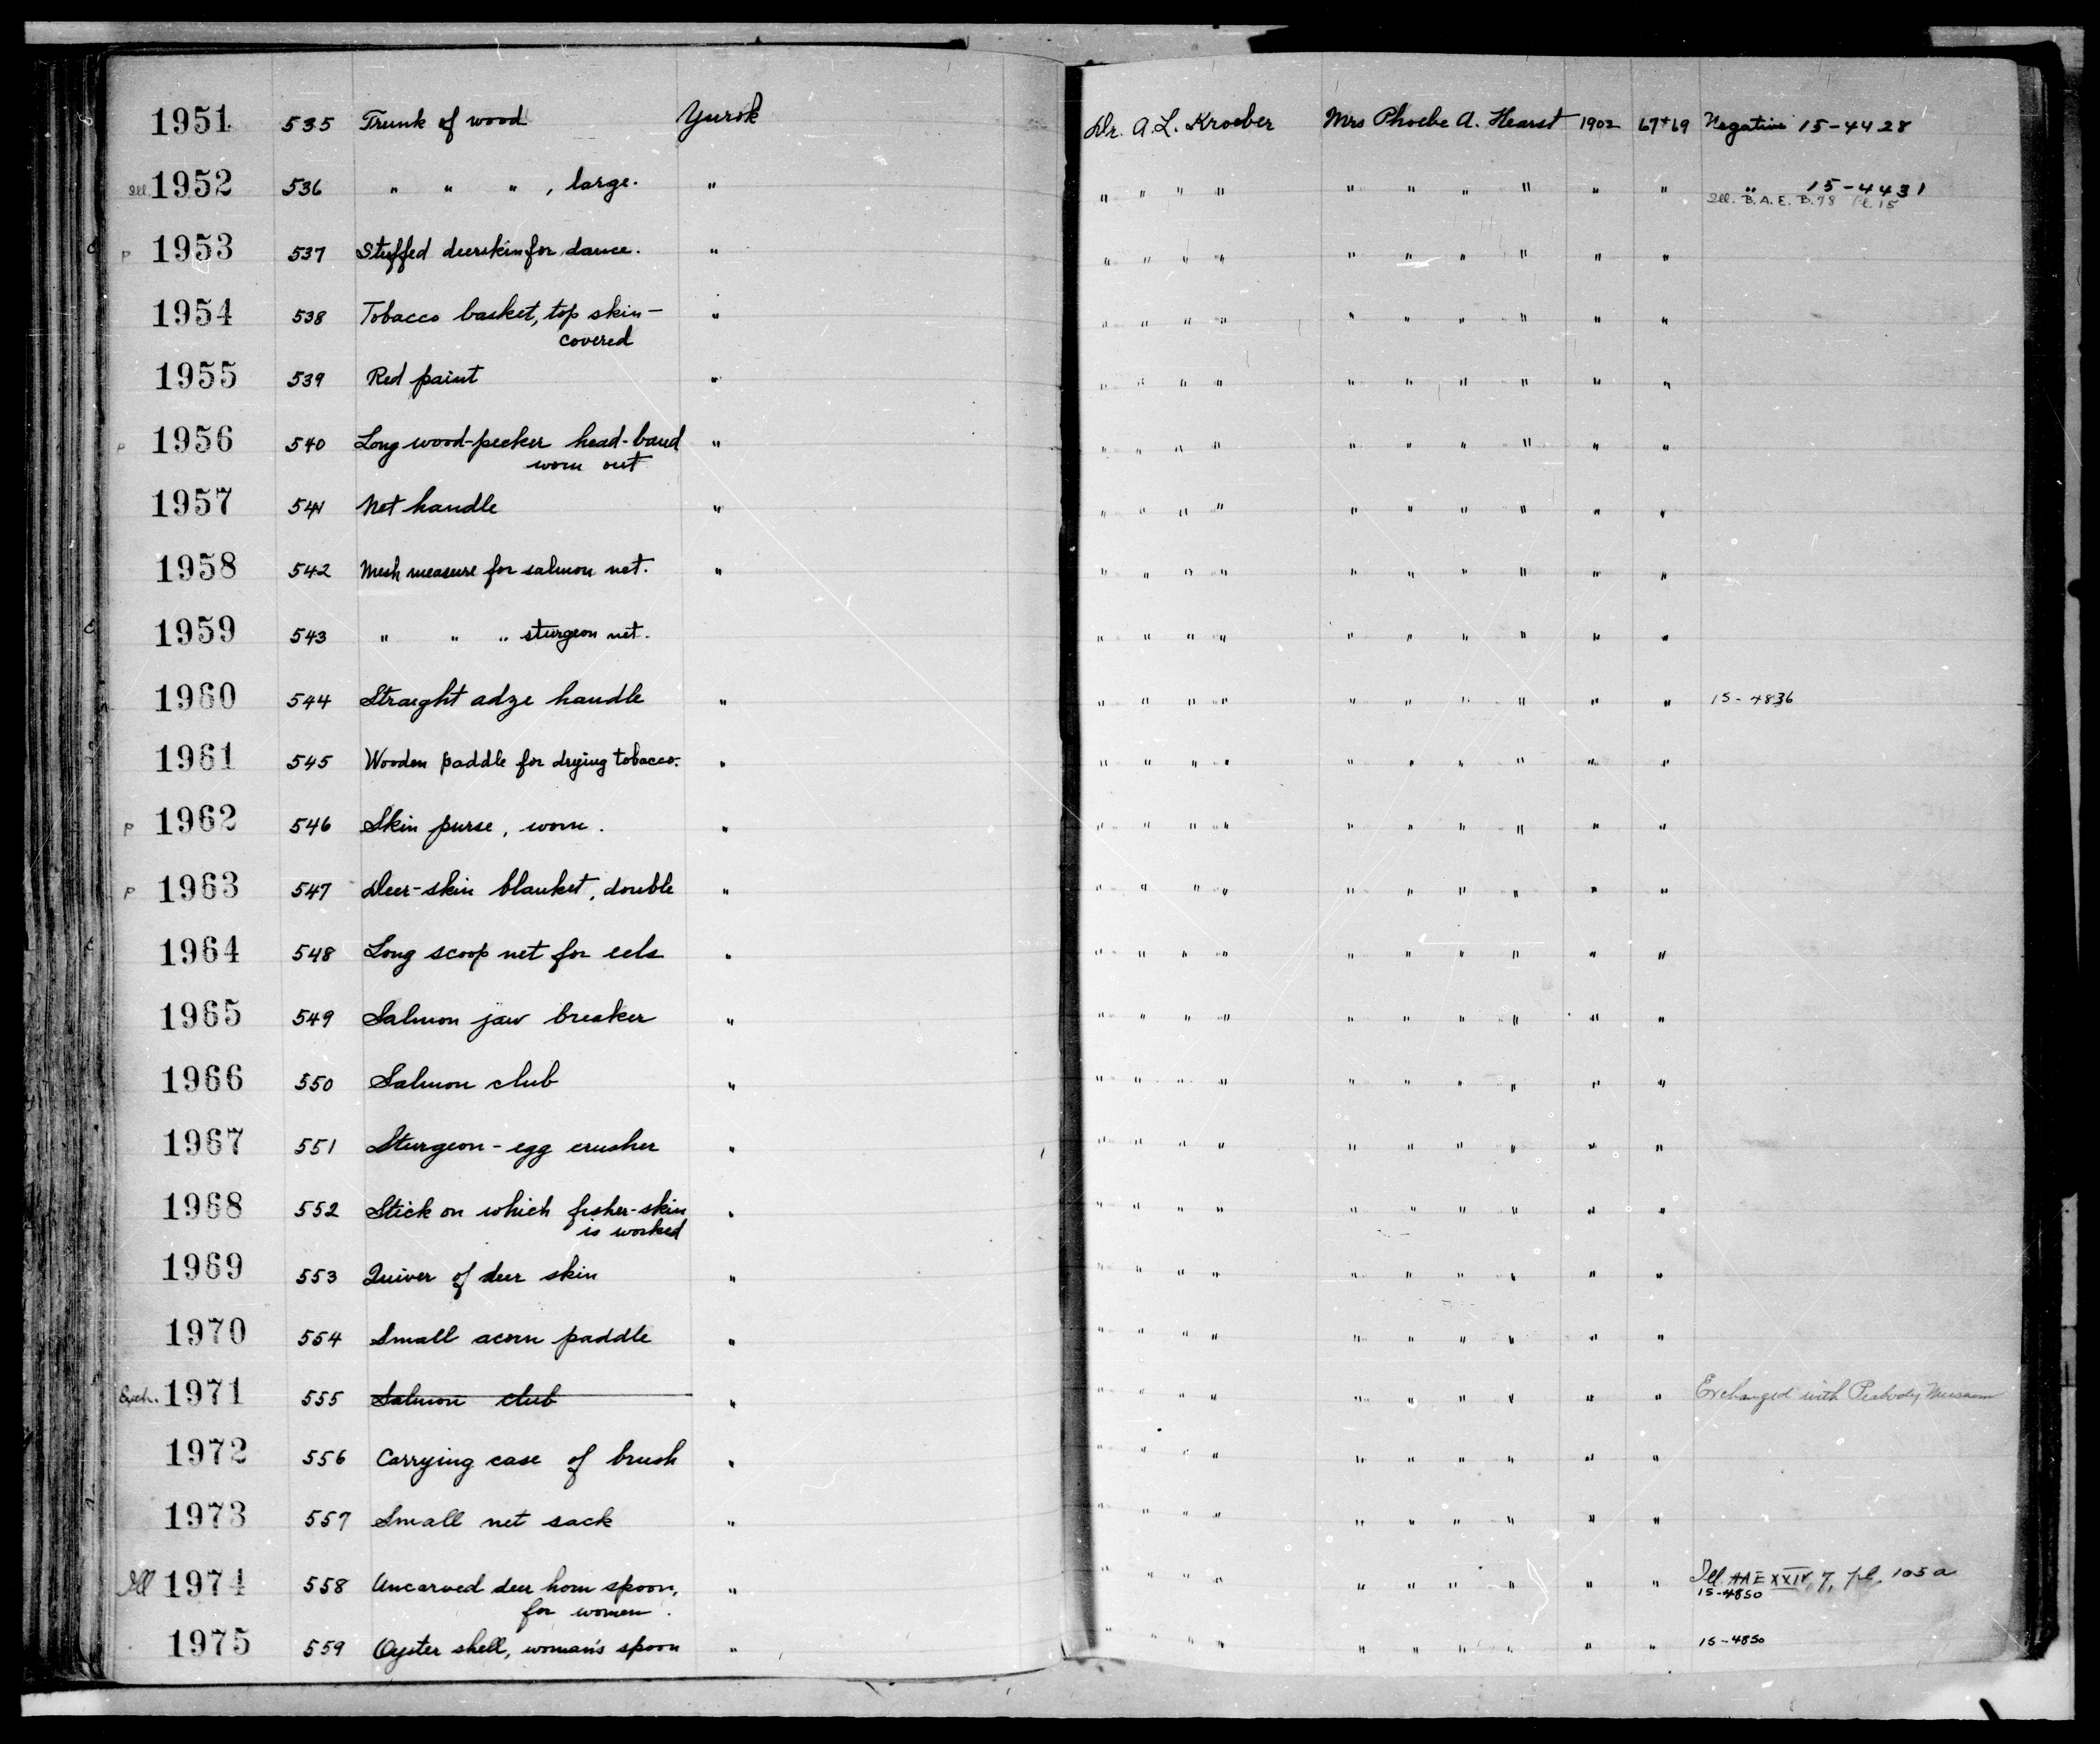 1951 535 Trunk of wood Yurok Dr. A. L. Kroeber Mrs Phoebe A. Hearst 1902 67+69 Negative 15-4428
Ill 1952 536 " " " , large. " " " " " " " " " " " " 15-4431
Ill. B.A.E. B.78 Pl. 15
P 1953 537 Stuffed deerskin for dance. " " " " " " " " " " "
1954 538 Tobacco basket, top skin- " " " " " " " " " " "
covered
1955 539 Red paint " " " " " " " " " " "
P 1956 540 Long wood-pecker head-band " " " " " " " " " " "
worn out
1957 541 Net handle " " " " " " " " " " "
1958 542 Mesh measure for salmon net. " " " " " " " " " " "
1959 543 " " " sturgeon net. " " " " " " " " " "
1960 544 Straight adze handle " " " " " " " " " " " 15-4836
1961 545 Wooden paddle for drying tobacco. " " " " " " " " " " "
P 1962 546 Skin purse, worn. " " " " " " " " " " "
P 1963 547 Deer-skin blanket, double " " " " " " " " " " "
1964 548 Long scoop net for eels " " " " " " " " " " "
1965 549 Salmon jaw breaker " " " " " " " " " " "
1966 550 Salmon club " " " " " " " " " " "
1967 551 Sturgeon-egg crusher " " " " " " " " " " "
1968 552 Stick on which fisher-skin " " " " " " " " " " "
is worked
1969 553 Quiver of deer skin " " " " " " " " " " "
1970 554 Small acorn paddle " " " " " " " " " " "
Exch. 1971 555 Salmon club " " " " " " " " " " " Exchanged with Peabody Museum
1972 556 Carrying case of brush " " " " " " " " " " "
1973 557 Small net sack " " " " " " " " " " "
Ill 1974 558 Uncarved deer horn spoon, " " " " " " " " " " " Ill AAE XXIV, 7, pl. 105a
for women. 15-4850
1975 559 Oyster shell, woman's spoon " " " " " " " " " " " 15-4850